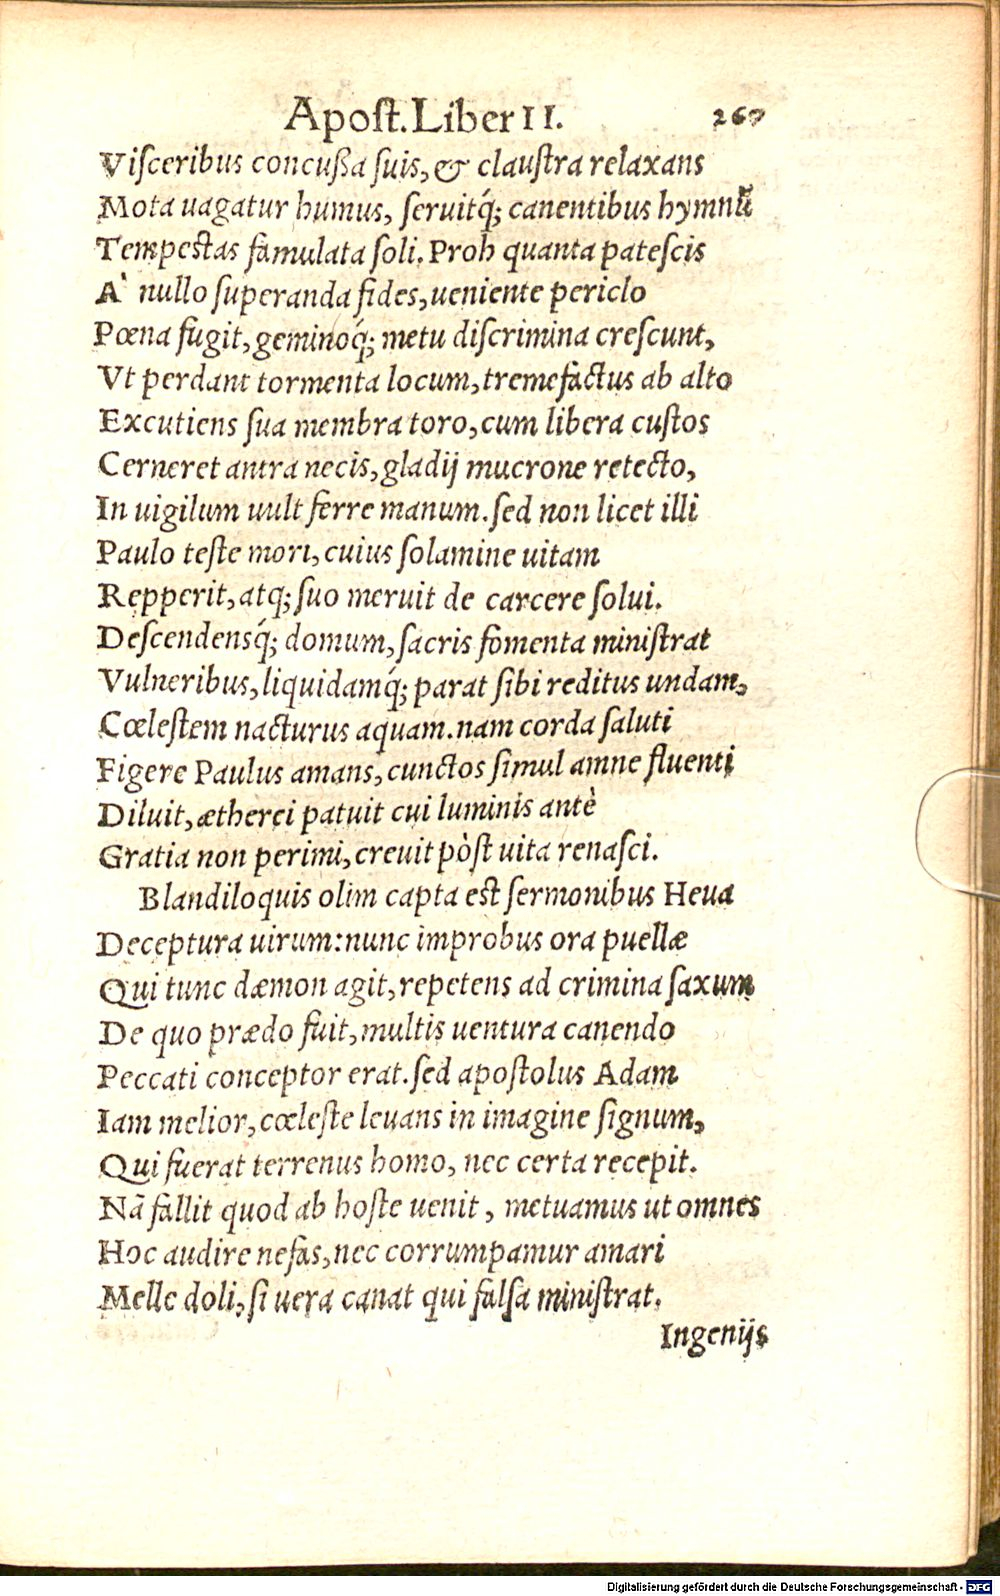 Apost. Liber II. 267
Visceribus concußa suis, & claustra relaxans
Mota uagatur humus, seruitq́; canentibus hymnũ
Tempestas famulata soli. Proh quanta patescis
A` nullo superanda fides, ueniente periclo
Pœna fugit, geminoq́; metu discrimina crescunt,
Vt perdant tormenta locum, tremefactus ab alto
Excutiens sua membra toro, cum libera custos
Cerneret antra necis, gladij mucrone retecto,
In uigilum uult ferre manum. sed non licet illi
Paulo teste mori, cuius solamine uitam
Repperit, atq; suo meruit de carcere solui.
Descendensq́; domum, sacris fomenta ministrat
Vulneribus, liquidamq́; parat sibi reditus undam,
Cœlestem nacturus aquam. nam corda saluti
Figere Paulus amans, cunctos simul amne fluenti
Diluit, ætherei patuit cui luminis antè
Gratia non perimi, creuit pòst uita renasci.
Blandiloquis olim capta est sermonibus Heua
Deceptura uirum: nunc improbus ora puellæ
Qui tunc dæmon agit, repetens ad crimina saxum
De quo prædo fuit, multis uentura canendo
Peccati conceptor erat. sed apostolus Adam
Iam melior, cœleste leuans in imagine signum,
Qui fuerat terrenus homo, nec certa recepit.
Nã fallit quod ab hoste uenit, metuamus ut omnes
Hoc audire nefas, nec corrumpamur amari
Melle doli, si uera canat qui falsa ministrat.
Ingenijs
Digitalisierung gefördert durch die Deutsche Forschungsgemeinschaft - DFG